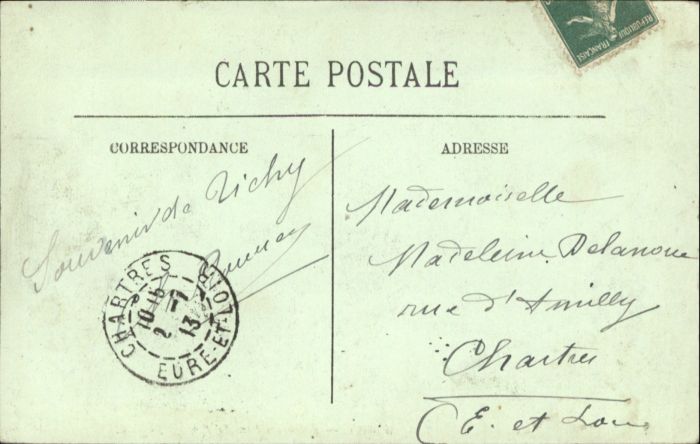 REPUBLIQUE FRANÇAISE
CARTE POSTALE
CORRESPONDANCE
Souvenir de Vichy
CHARTRES
10 15
2 - 7
13
EURE-ET-LOIR
ADRESSE
Mademoiselle
Madeleine Delanoue
rue d'Amilly
Chartres
E. et Loir